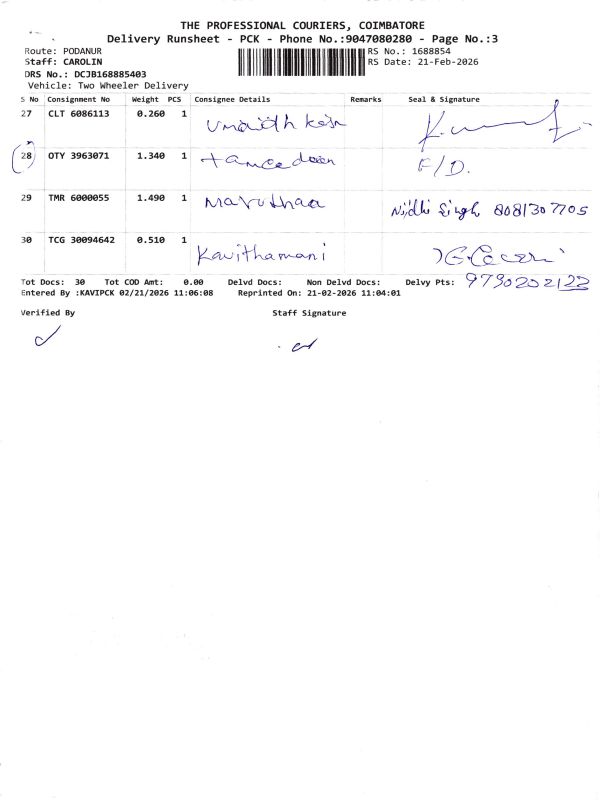 THE PROFESSIONAL COURIERS, COIMBATORE
Delivery Runsheet - PCK - Phone No.:9047080280 - Page No.:3
Route: PODANUR RS No.: 1688854
Staff: CAROLIN RS Date: 21-Feb-2026
DRS No.: DCJB168885403
Vehicle: Two Wheeler Delivery
S No Consignment No Weight PCS Consignee Details Remarks Seal & Signature
27 CLT 6086113 0.260 1
28 OTY 3963071 1.340 1 F/D.
29 TMR 6000055 1.490 1 Maruthaa Nidhi Singh 8081307705
30 TCG 30094642 0.510 1 Kavithamani
Tot Docs: 30 Tot COD Amt: 0.00 Delvd Docs: Non Delvd Docs: Delvy Pts: 9790202122
Entered By :KAVIPCK 02/21/2026 11:06:08 Reprinted On: 21-02-2026 11:04:01
Verified By Staff Signature